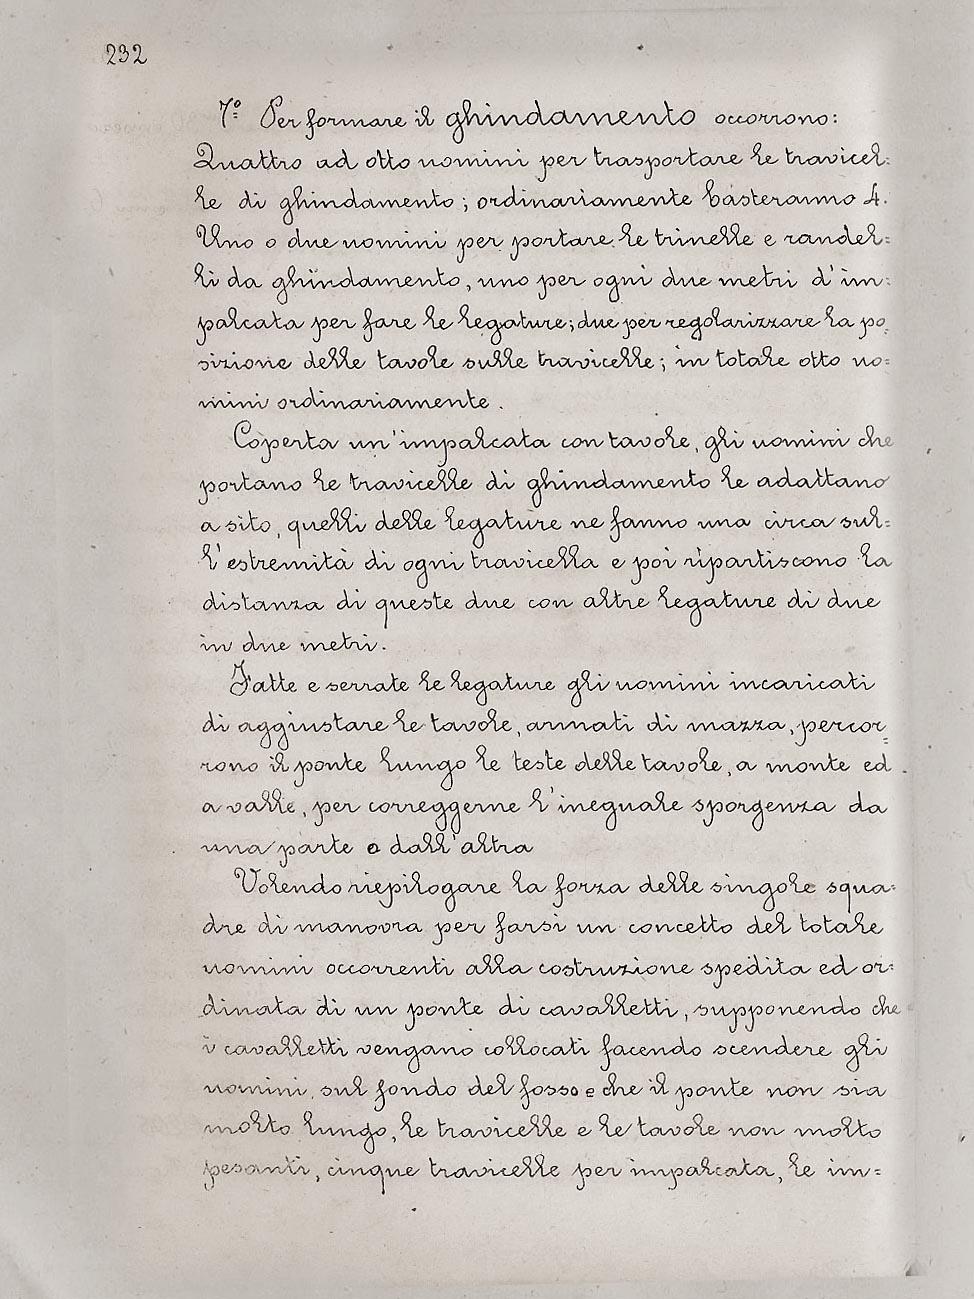 232
7º Per formare il ghindamento occorrono:
Quattro ad otto uomini per trasportare le travicel=
le di ghindamento; ordinariamente basteranno 4.
Uno o due uomini per portare le trinelle e randel=
li da ghindamento, uno per ogni due metri d'im=
palcata per fare le legature; due per regolarizzare la po=
sizione delle tavole sulle travicelle; in totale otto uo=
mini ordinariamente.
Coperta un'impalcata con tavole, gli uomini che
portano le travicelle di ghindamento le adattano
a sito, quelli delle legature ne fanno una circa sul=
l'estremità di ogni travicella e poi ripartiscono la
distanza di queste due con altre legature di due
in due metri.
Fatte e serrate le legature gli uomini incaricati
di aggiustare le tavole, armati di mazza, percor=
rono il ponte lungo le teste delle tavole, a monte ed
a valle, per correggerne l'ineguale sporgenza da
una parte o dall'altra
Volendo riepilogare la forza delle singole squa=
dre di manovra per farsi un concetto del totale
uomini occorrenti alla costruzione spedita ed or=
dinata di un ponte di cavalletti, supponendo che
i cavalletti vengano collocati facendo scendere gli
uomini sul fondo del fosso e che il ponte non sia
molto lungo, le travicelle e le tavole non molto
pesanti, cinque travicelle per impalcata, le im=